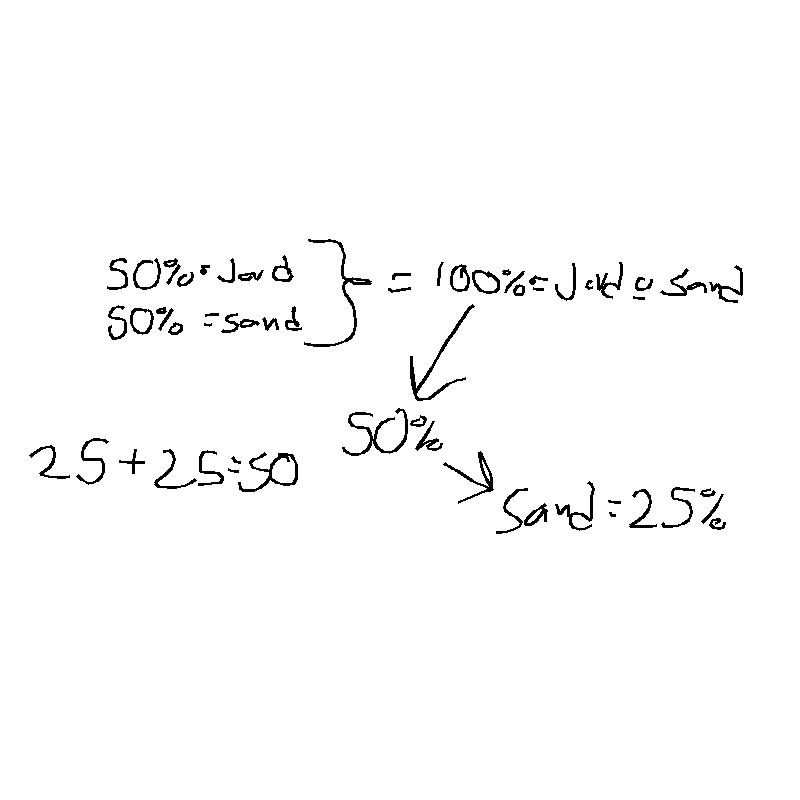 50% = Jord
50% = sand
= 100% = Jord o sand
50%
25 + 25 = 50
Sand = 25%